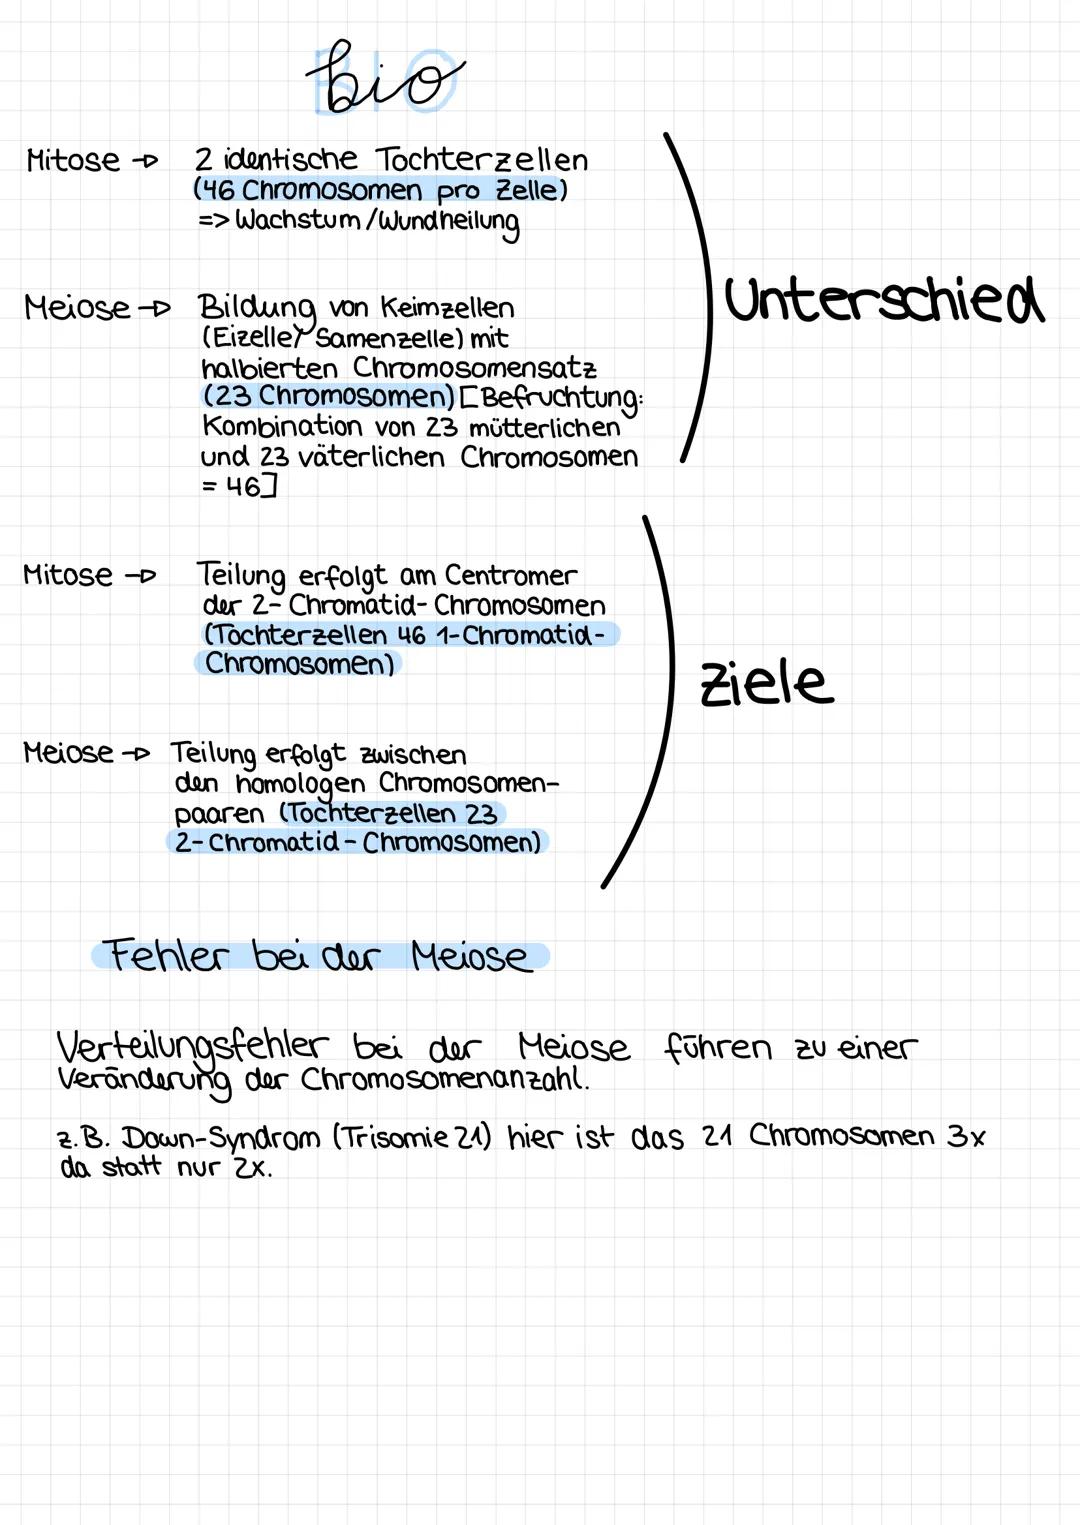 bio
Mitose → 2 identische Tochterzellen
(46 Chromosomen pro Zelle)
=> Wachstum/Wundheilung
Unterschied
Meiose → Bildung von Keimzellen
(Eizelle, Samenzelle) mit
halbierten Chromosomensatz
(23 Chromosomen) [Befruchtung:
Kombination von 23 mütterlichen
und 23 väterlichen Chromosomen
= 46]
Mitose → Teilung erfolgt am Centromer
der 2-Chromatid-Chromosomen
(Tochterzellen 46 1-Chromatid-
Chromosomen)
Ziele
Meiose → Teilung erfolgt zwischen
den homologen Chromosomen-
paaren (Tochterzellen 23
2-Chromatid-Chromosomen)
Fehler bei der Meiose
Verteilungsfehler bei der Meiose führen zu einer
Veränderung der Chromosomenanzahl.
z.B. Down-Syndrom (Trisomie 21) hier ist das 21 Chromosomen 3x
da statt nur 2x.